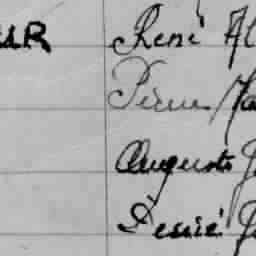 UR René Al
Pierre Ma
Auguste J
Désiré J